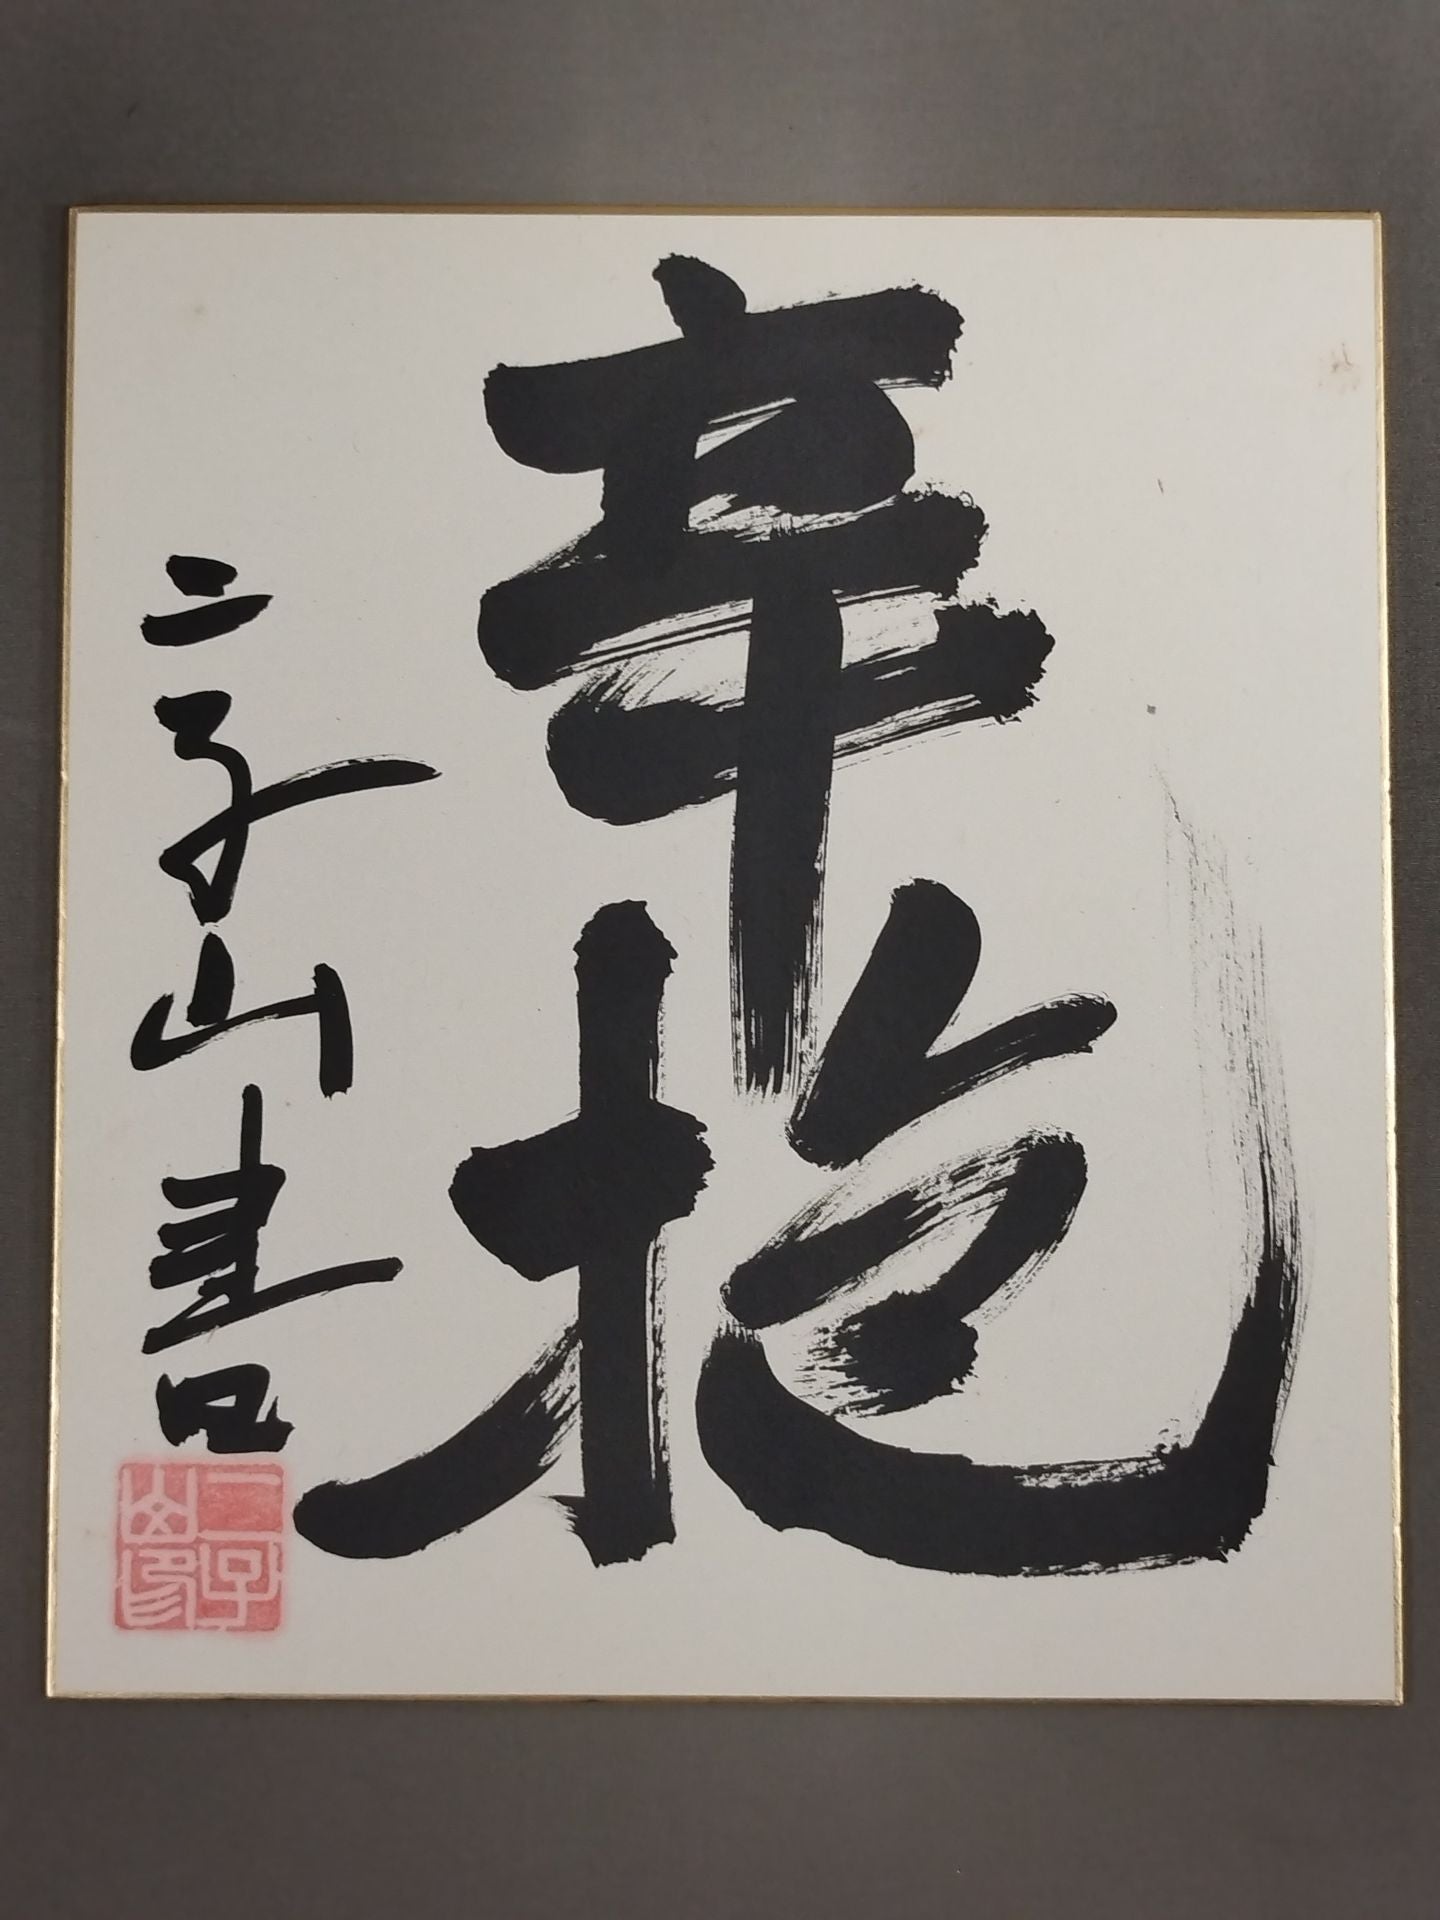 辛抱
二子山書
二子山印